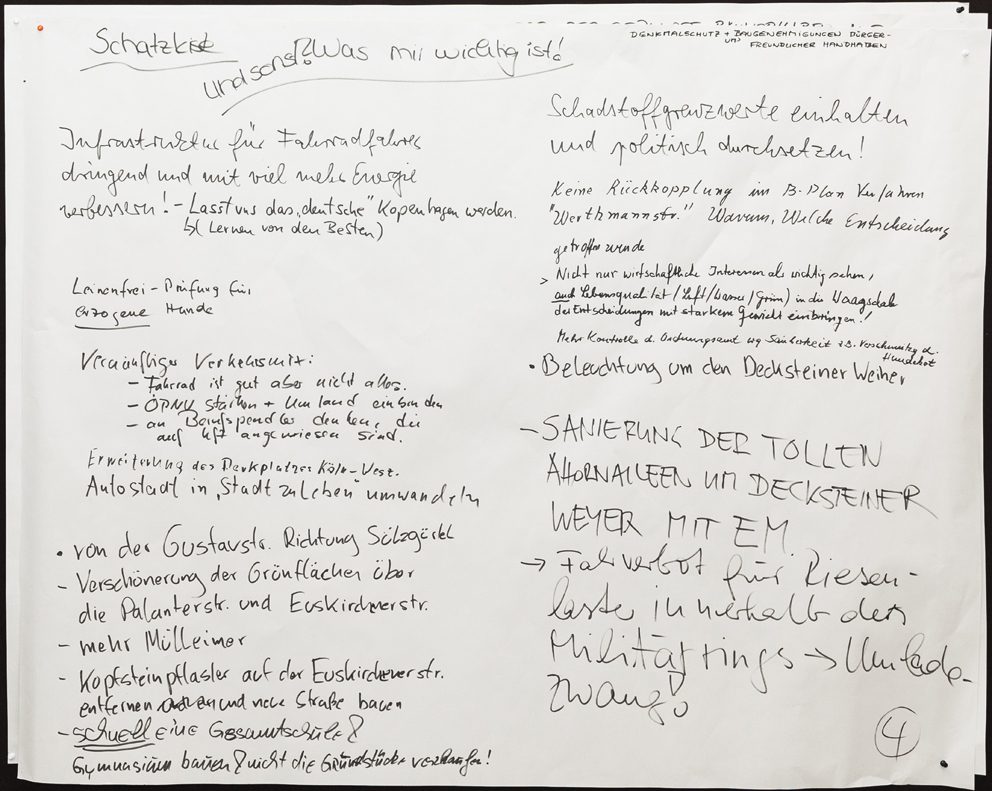 Schatzkiste
und sonst? Was mir wichtig ist!
DENKMALSCHUTZ + BAUGENEHMIGUNGEN BÜRGER-
UND FREUNDLICHER HANDHABEN
Infrastruktur für Fahrradfahrer
dringend und mit viel mehr Energie
verbessern! - Lasst uns das "deutsche" Kopenhagen werden.
(Lernen von den Besten)
Leinenfrei-Prüfung für
erzogene Hunde
Vernünftiger Verkehrsmix:
- Fahrrad ist gut aber nicht alles.
- ÖPNV stärken + Umland einbinden
- an Berufspendler denken, die
auf angewiesen sind.
Erweiterung des Köln-West.
Autostadt in "Stadt zu leben" umwandeln
• von der Gustavstr. Richtung Sülzgürtel
- Verschönerung der Grünflächen über
die Palanterstr. und Euskirchnerstr.
- mehr Mülleimer
- Kopfsteinpflaster auf der Euskirchenerstr.
entfernen und neue Straße bauen
- schnell eine Gesamtschule &
Gymnasium bauen & nicht die Grundstücke verkaufen!
Schadstoffgrenzwerte einhalten
und politisch durchsetzen!
Keine Rückkopplung im B-Plan Verfahren
"Werthmannstr." Warum, Welche Entscheidung
getroffen wurde
> Nicht nur wirtschaftliche Interessen als wichtig sehen,
auch Lebensqualität (Luft/Wasser/Grün) in die Waagschale
der Entscheidungen mit starkem Gewicht einbringen!
Mehr Kontrolle d. Ordnungsamt wg Sauberkeit z.B. Verschmutzg d.
Hundekot
• Beleuchtung um den Decksteiner Weiher
- SANIERUNG DER TOLLEN
AHORNALLEEN UM DECKSTEINER
WEYER MIT EM.
→ Fahrverbot für Riesen-
laster innerhalb des
Militärrings → Umlade-
zwang!
4